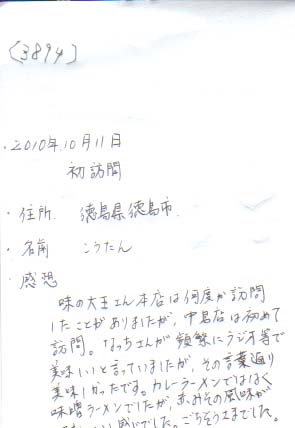 [3894]
・2010年10月11日
初訪問
・住所 徳島県徳島市
・名前 こうたん
・感想
味の大王さん本店は何度か訪問
したことがありましたが、中島店は初めて
訪問。なっちさんが頻繁にラジオ等で
美味しいと言っていましたが、その言葉通り
美味しかったです。カレーラーメンではなく
味噌ラーメンでしたが、赤みその風味が
感じでした。ごちそうさまでした。